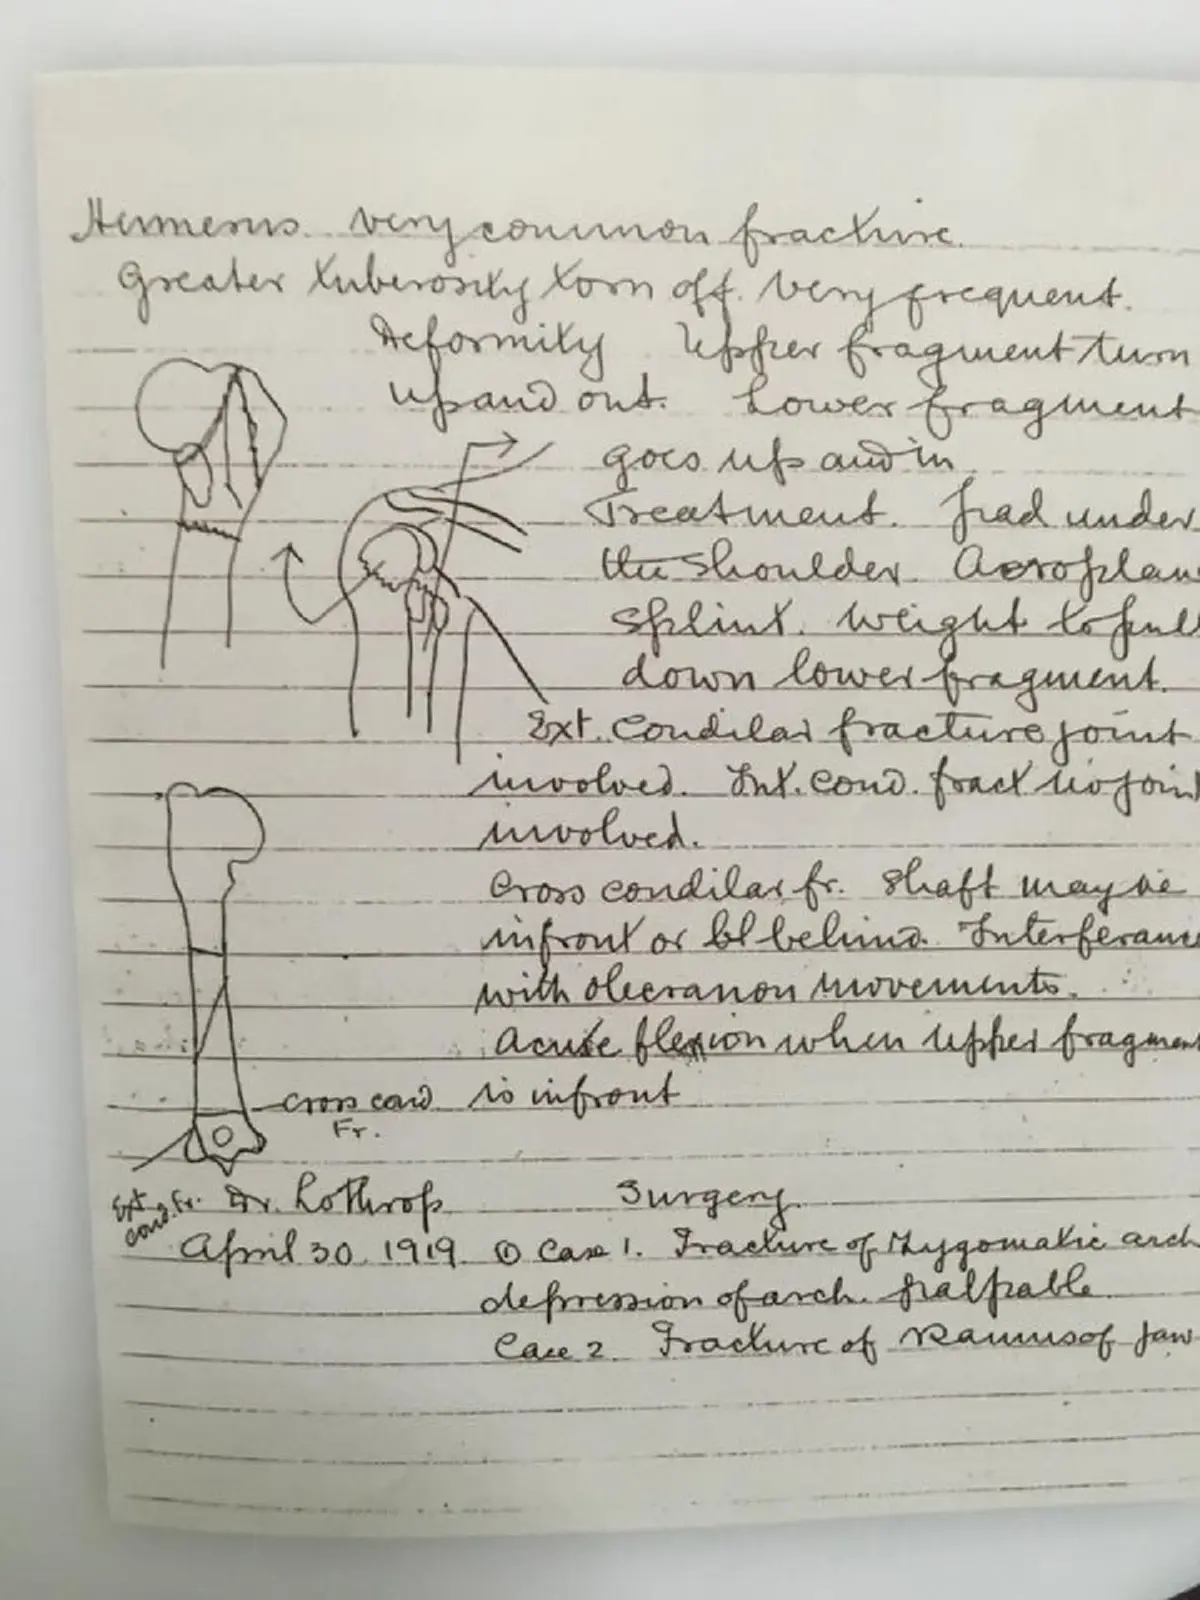 Humerus. very common fracture.
Greater tuberosity torn off. very frequent.
Deformity Upper fragment turn
up and out. Lower fragment
goes up and in
Treatment. pad under
the shoulder. Aeroplan
splint. weight to pull
down lower fragment.
Ext. Condilar fracture joint
involved. Int. Cond. fract no joint
involved.
Cross condilar fr. Shaft may be
infront or bl behind. Interferanc
with olecranon movements.
Acute flexion when upper fragment
is infront
cross cond
Fr.
Ext
cond. Fr.
Dr. Lothrop Surgery.
April 30, 1919. ① Case 1. Fracture of Zygomatic arch
depression of arch. palpable.
Case 2. Fracture of Ramus of jaw